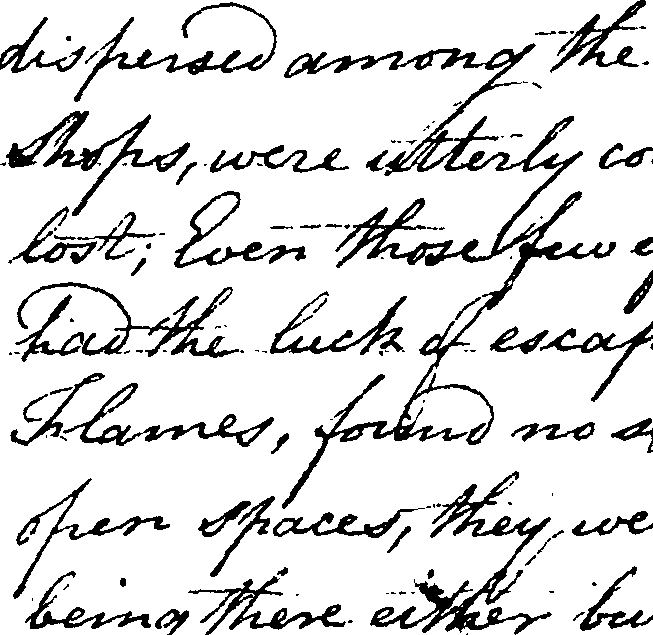 dispersed among the
Shops, were utterly co
lost; Even those few
had the luck of escap
Flames, found no s
open spaces, they we
being there either bu